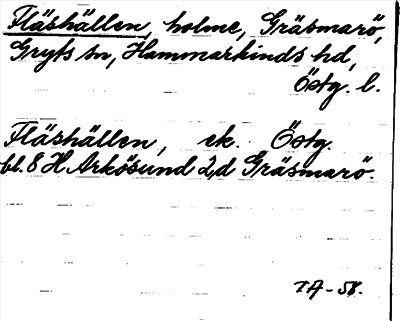 Fläshällen, holme, Gräsmarö,
Gryts sn, Hammarkinds hd,
Östg. l.
Fläshällen, ek. Östg.
bl. 8 H Arkösund 2,d Gräsmarö.
TA-58.